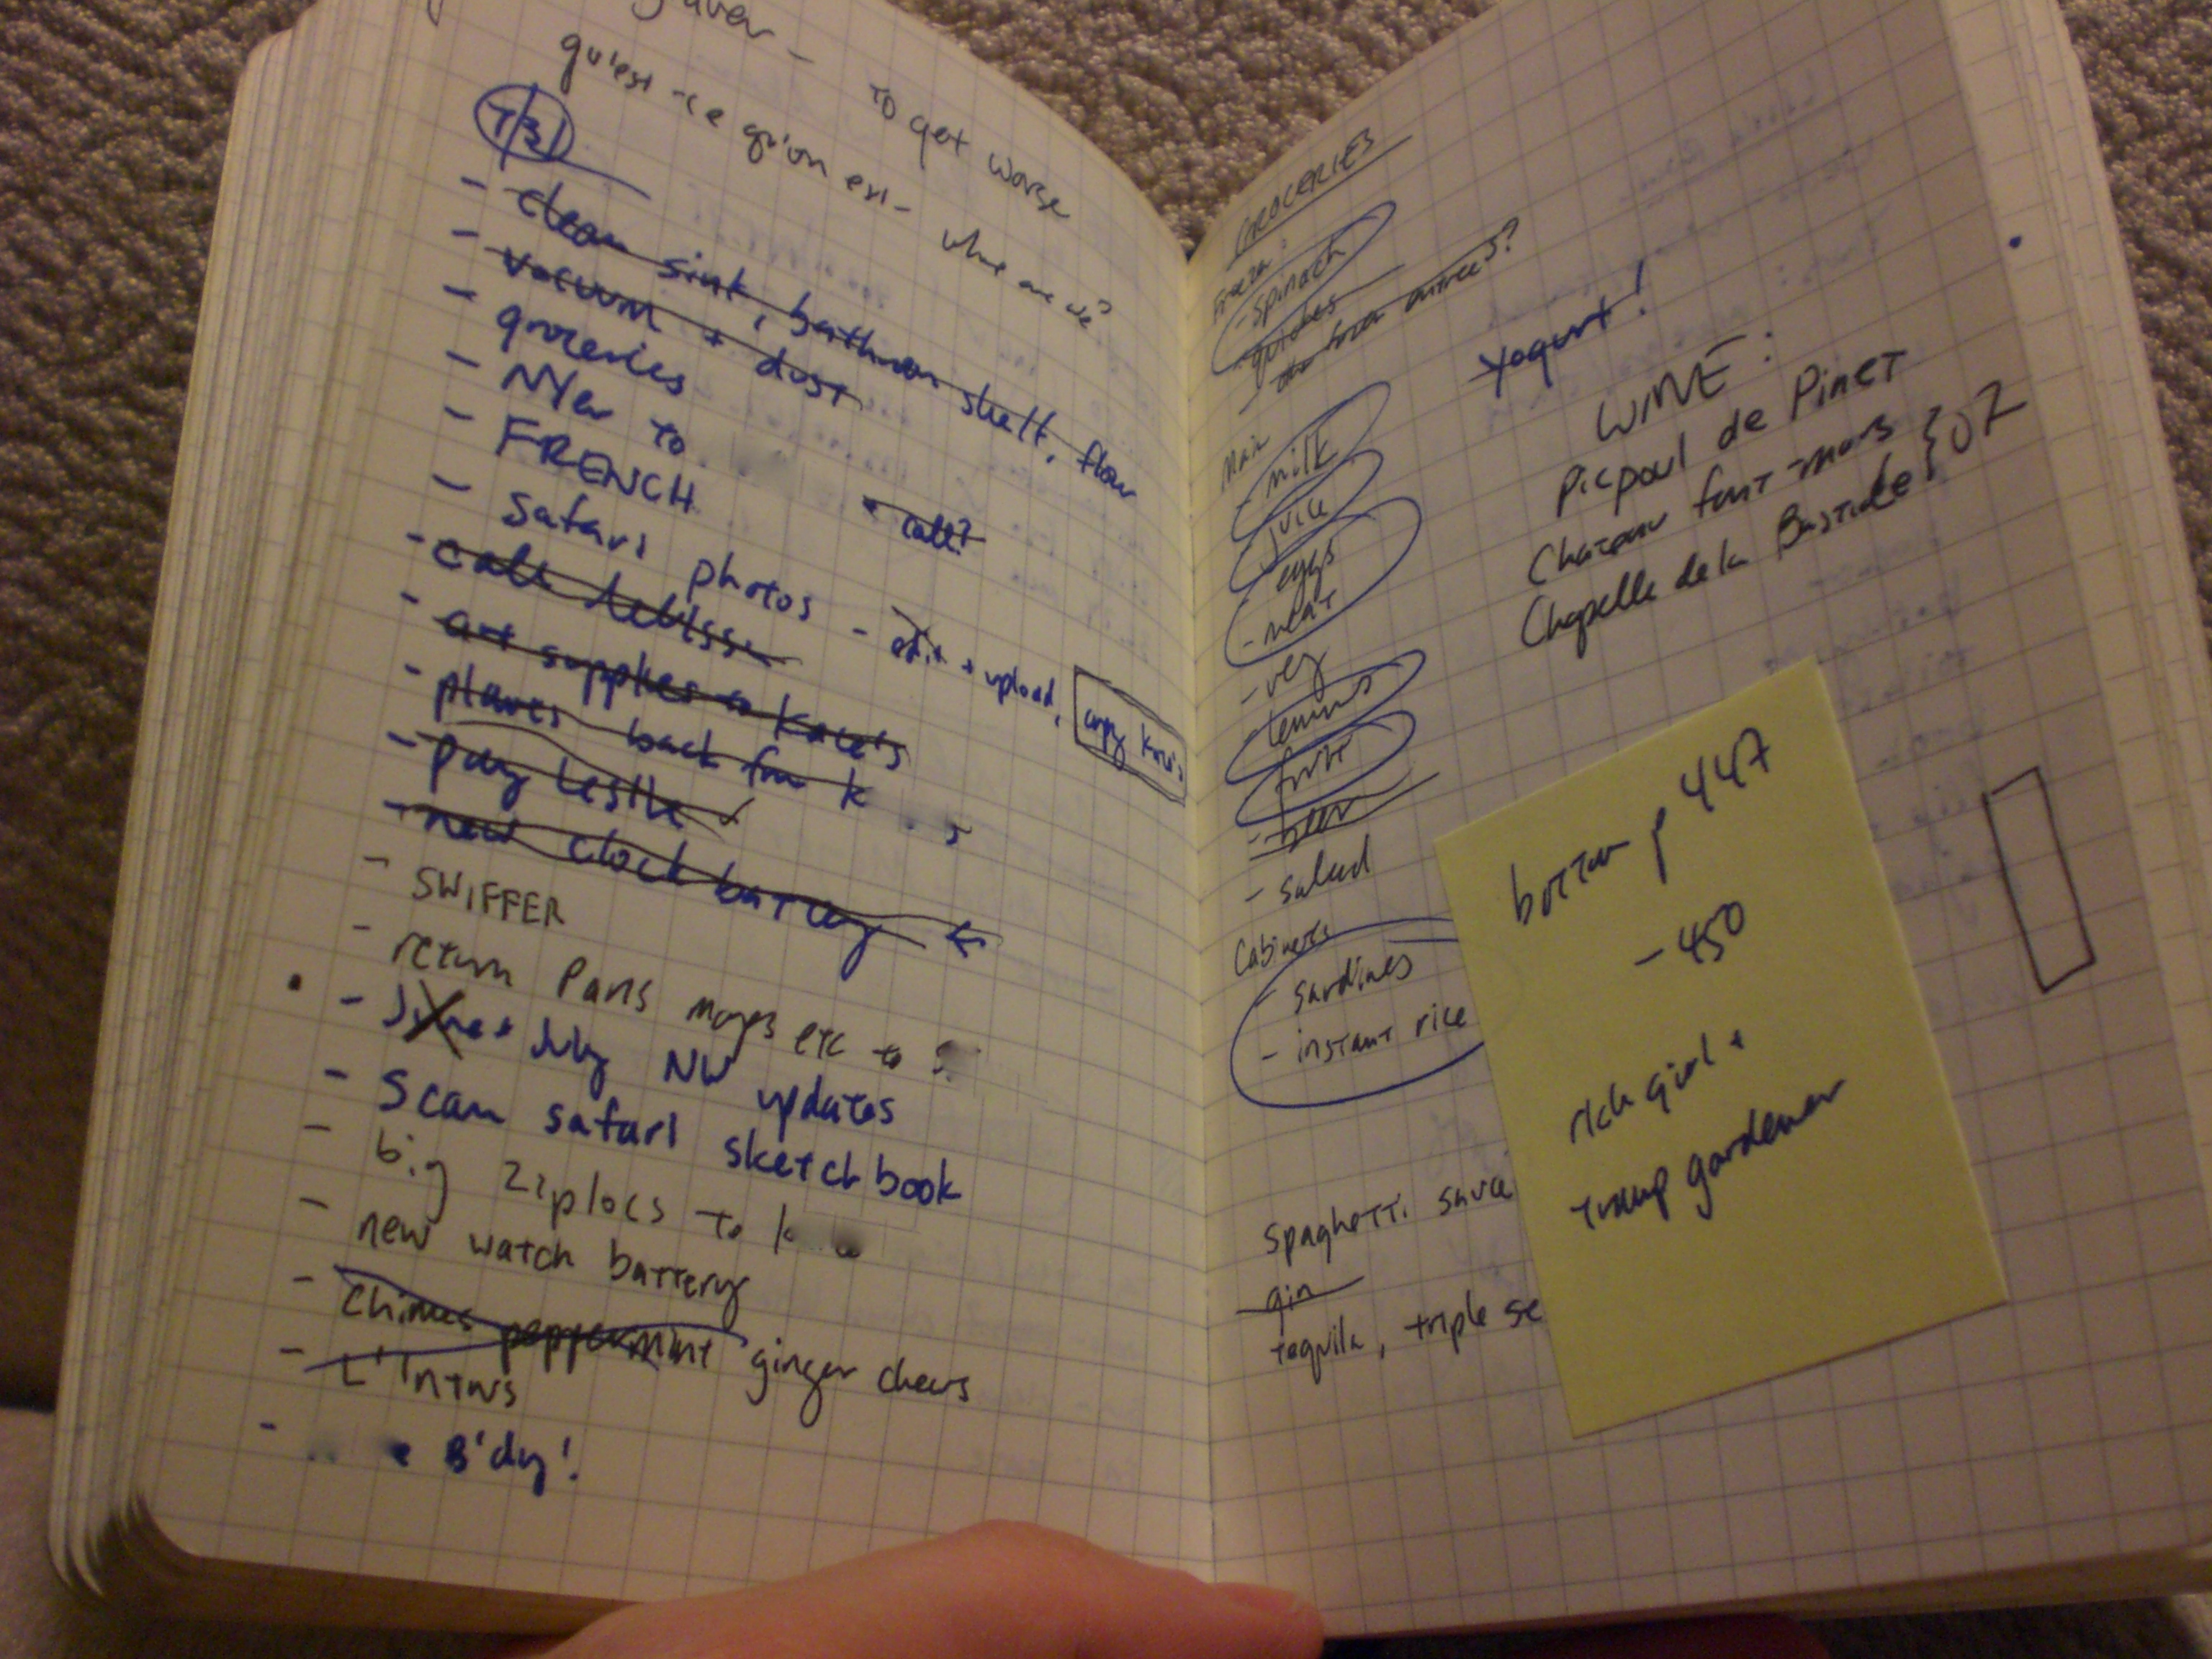 to get worse
qu'est-ce qu'on est - where are we?
7/31
- clean sink, bathroom shelf, floor
- vacuum + dust
- groceries
- NYer to
- FRENCH
call?
- Safari photos - edit + upload, copy
- call
- art supplies
- plates back from K s
- pay Leslie
- new clock battery
- SWIFFER
- return Paris maps etc to
- June + July NW updates
- Scan safari sketchbook
- big ziplocs to k
- new watch battery
- peppermint ginger chews
-
- B'dy!
GROCERIES
Freezer:
- spinach
- quiches
- frozen entrees?
Yogurt!
Main
- milk
- juice
- eggs
- meat
- veg
- lemons
- fruit
- beer
- salad
Cabinets
- sardines
- instant rice
spaghetti sauce
gin
tequila, triple se
WINE:
Picpoul de Pinet
Chateau font-mars
Chapelle de la Bastide } 07
bottom p 447
- 450
rich girl +
tramp gardener